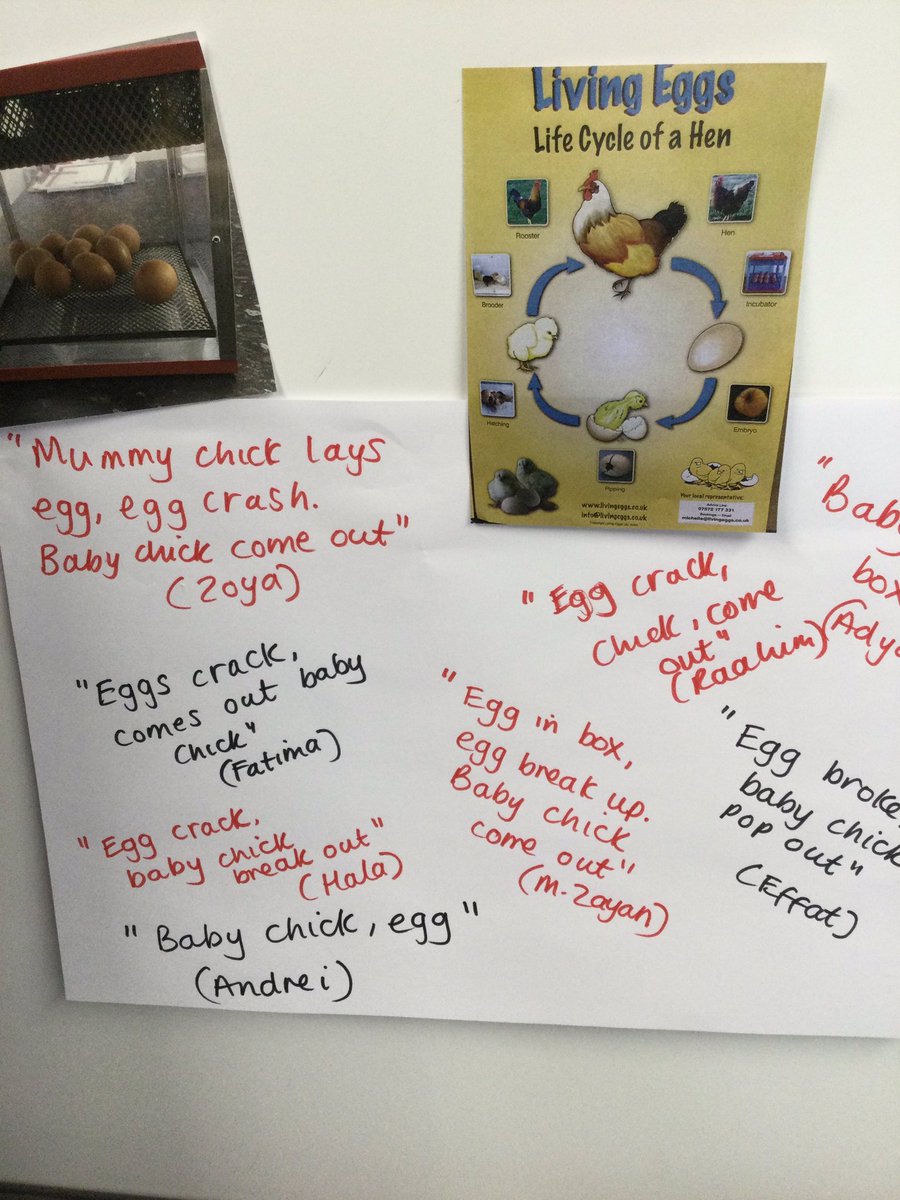 Living Eggs
Life Cycle of a Hen
Rooster
Hen
Brooder
Incubator
Hatching
Embryo
Pipping
www.livingeggs.co.uk
info@livingeggs.co.uk
Your local representative:
Advice Line
07572 177 331
Bookings — Email
michelle@livingeggs.co.uk
"Mummy chick lays
egg, egg crash.
Baby chick come out"
(Zoya)
"Baby
box
(Adya
"Egg crack,
chick, come
out"
(Raahim)
"Eggs crack,
comes out baby
chick"
(Fatima)
"Egg in box,
egg break up.
Baby chick
come out"
(M.Zayan)
"Egg broke,
baby chick
pop out"
(Effat)
"Egg crack,
baby chick
break out"
(Hala)
"Baby chick, egg"
(Andrei)